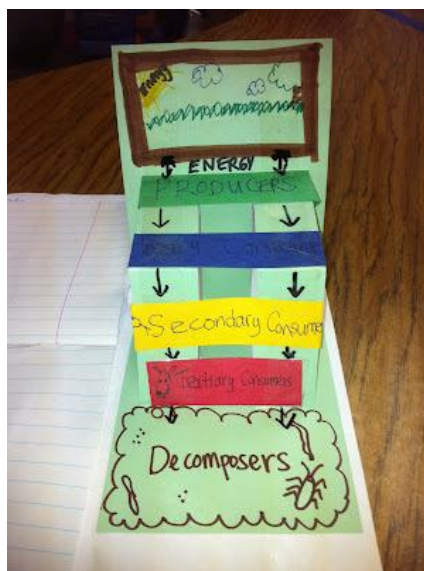 ENERGY
PRODUCERS
Secondary Consume
Tertiary Consumers
Decomposers